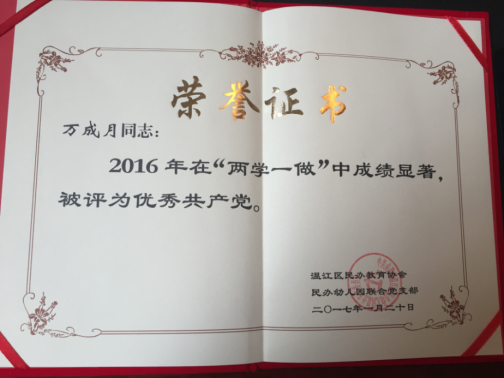 荣誉证书
万成月同志：
2016年在“两学一做”中成绩显著，
被评为优秀共产党。
温江区民办教育协会
民办幼儿园联合党支部
二〇一七年一月二十日